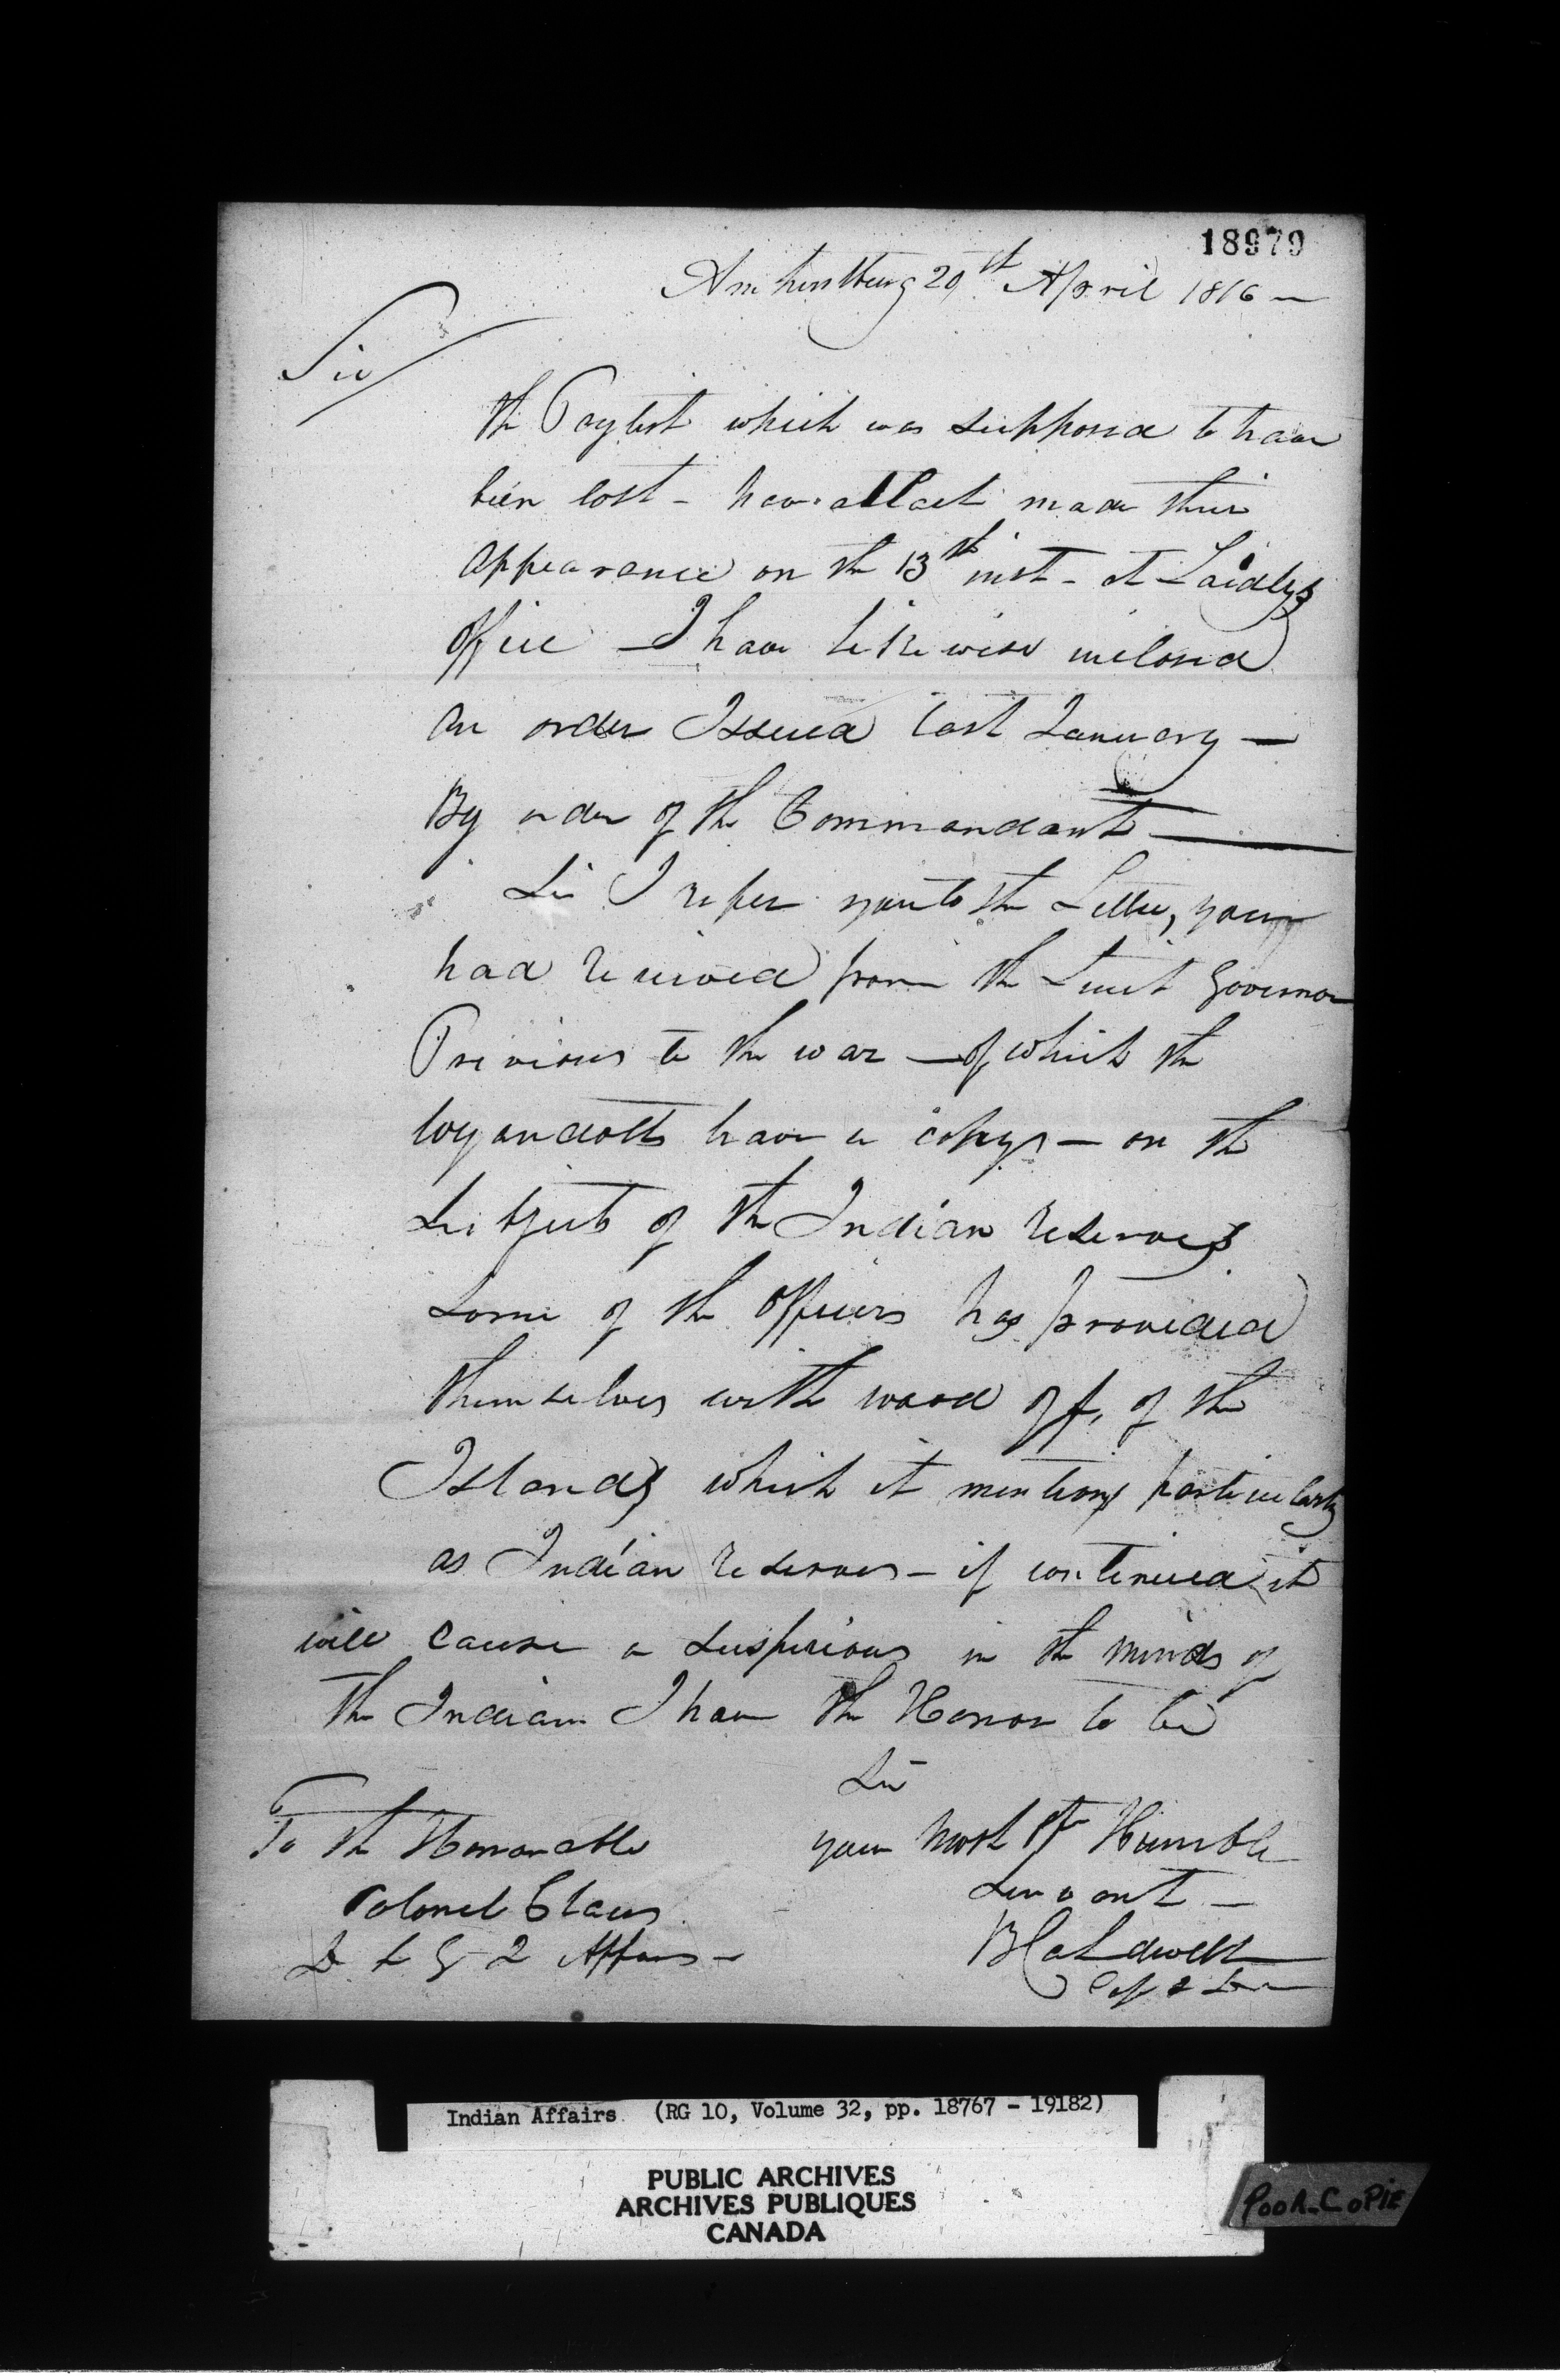 18979
Amherstburg 20th April 1816 —
Sir/
the Paylist which was supposed to have
been lost - have at last made their
appearance on the 13th inst - at Laidlys
office — I have likewise inclosed
an order Issued last January —
By order of the Commandant —
Sir I refer you to the Letter, you
had received from the Lieut Governor
Previous to the war — of which the
Wyandotts have a copy — on the
Subject of the Indian reserves
Some of the officers has provided
themselves with wood off, of the
Islands which it mentions particularly
as Indian reserves — if continued it
will cause a suspicious in the minds of
the Indians I have the Honor to be
Sir
your most Humble
Servant —
BCaldwell
To the Honorable
Colonel Claus
D S G I Affairs —
Indian Affairs (RG 10, Volume 32, pp. 18767 - 19182)
PUBLIC ARCHIVES
ARCHIVES PUBLIQUES
CANADA
POOR COPIE